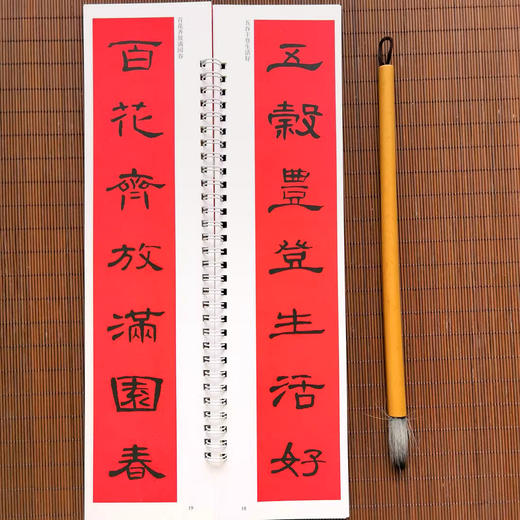 五谷丰登生活好
五穀豊登生活好
18
百花齐放满园春
百花齊放滿園春
19